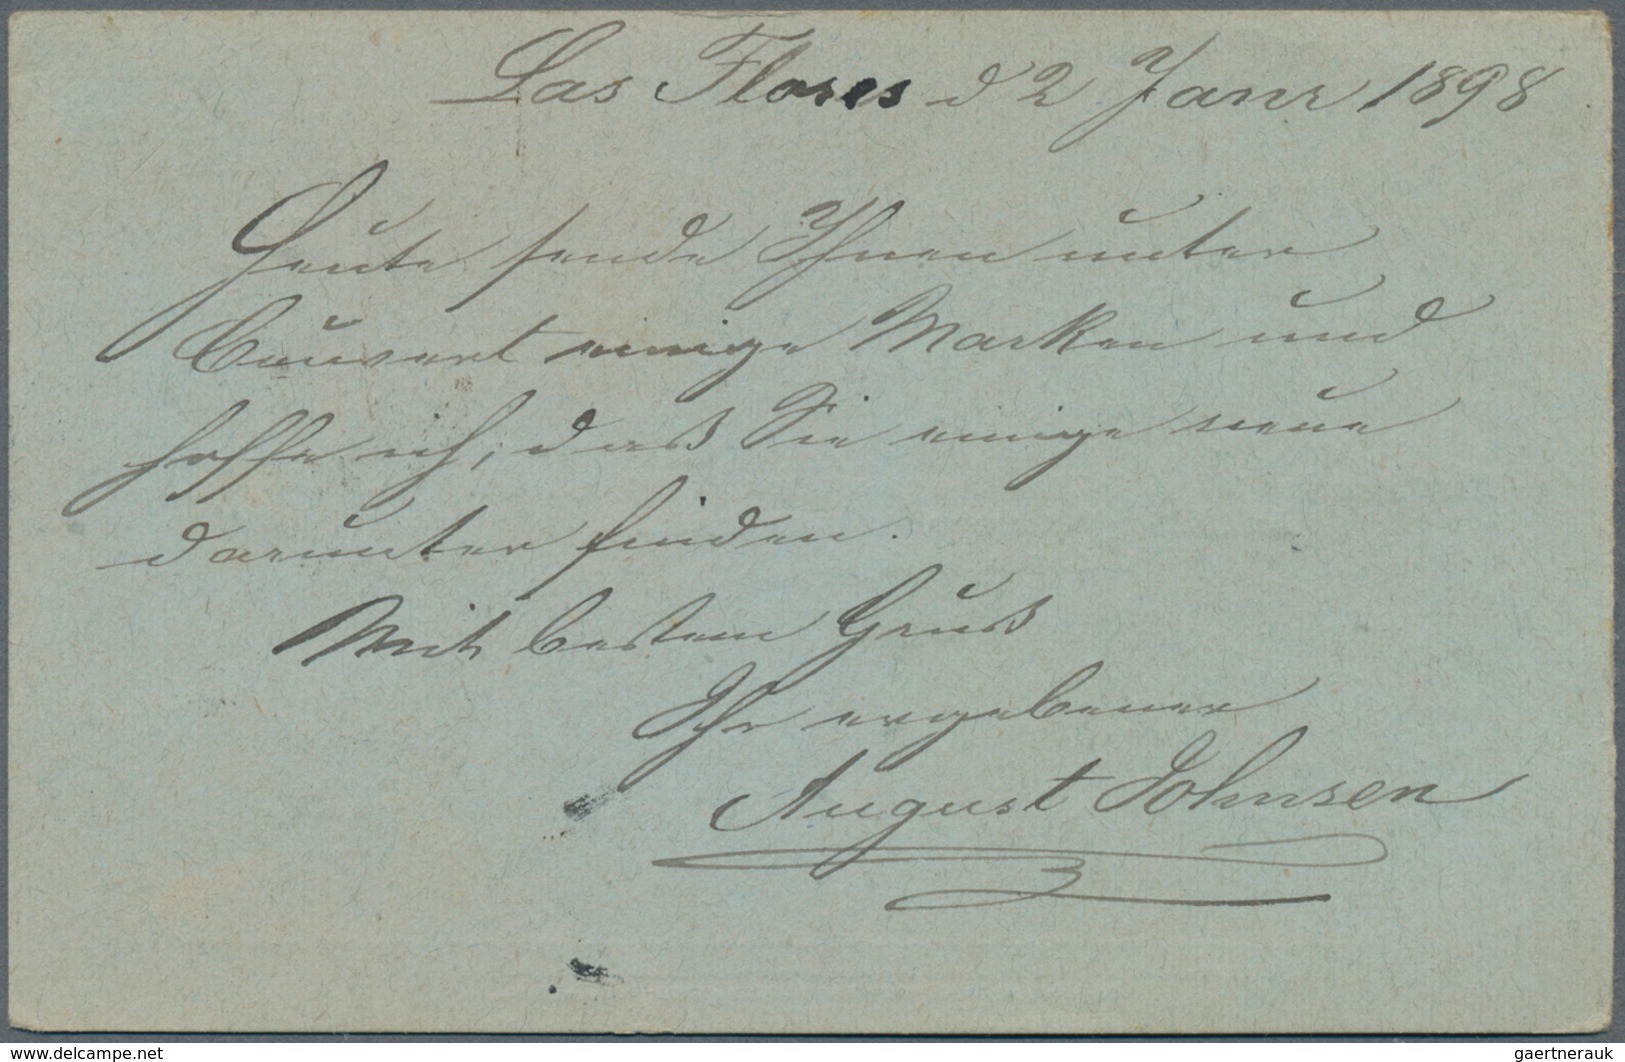 Las Flores d 2 Janr 1898
Heute sende Ihnen unter
Couvert einige Marken und
hoffe ich, daß Sie einige neue
darunter finden.
Mit bestem Gruß
Ihr ergebener
August Johnsen
www.delcampe.net
gaertnerauk